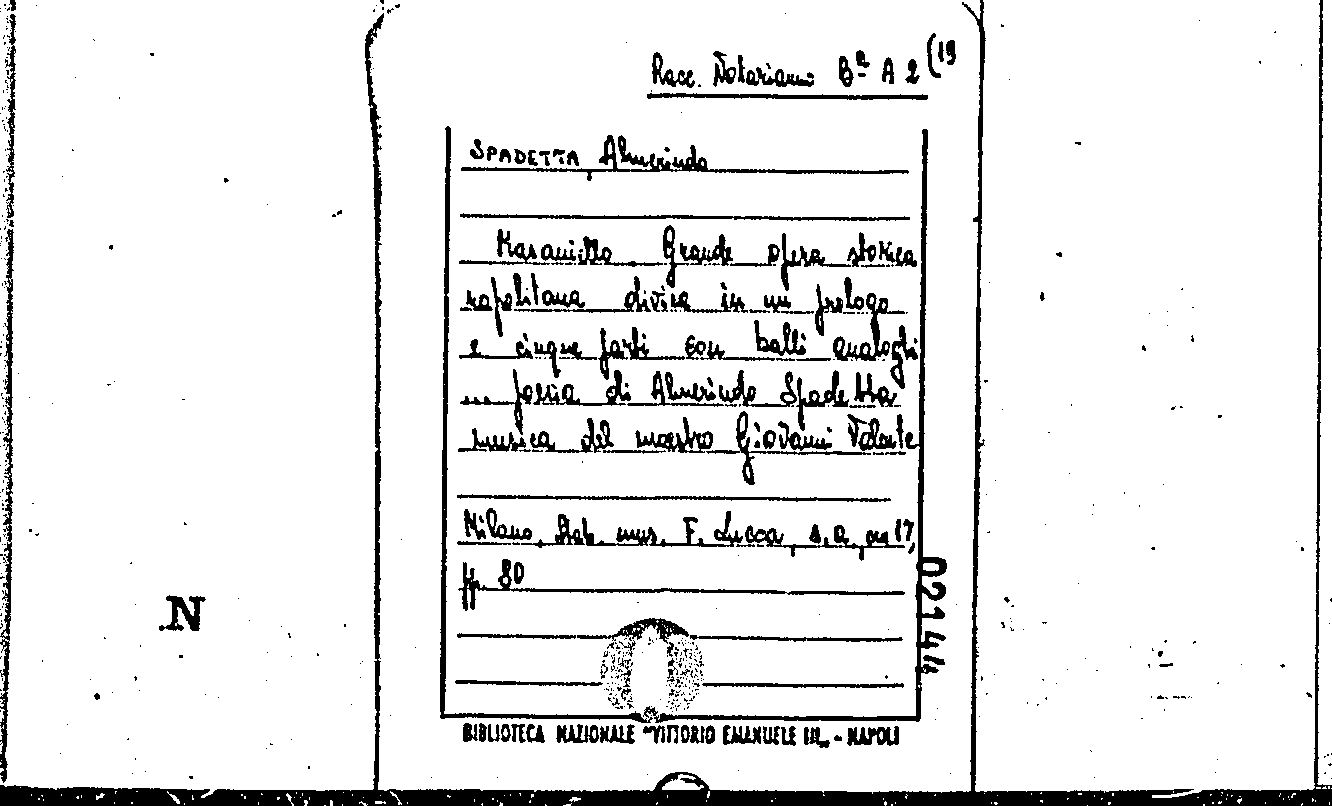 Racc. Notarianni Bª A 2 (19
SPADETTA, Almerindo
Masaniello. Grande opera storica
napolitana divisa in un prologo
e cinque parti con balli analoghi
... poesia di Almerindo Spadetta
musica del maestro Giovanni Valente
Milano, Stab. mus. F. Lucca, s.a., cm 17,
pp. 80
02144
N
BIBLIOTECA NAZIONALE "VITTORIO EMANUELE III" - NAPOLI